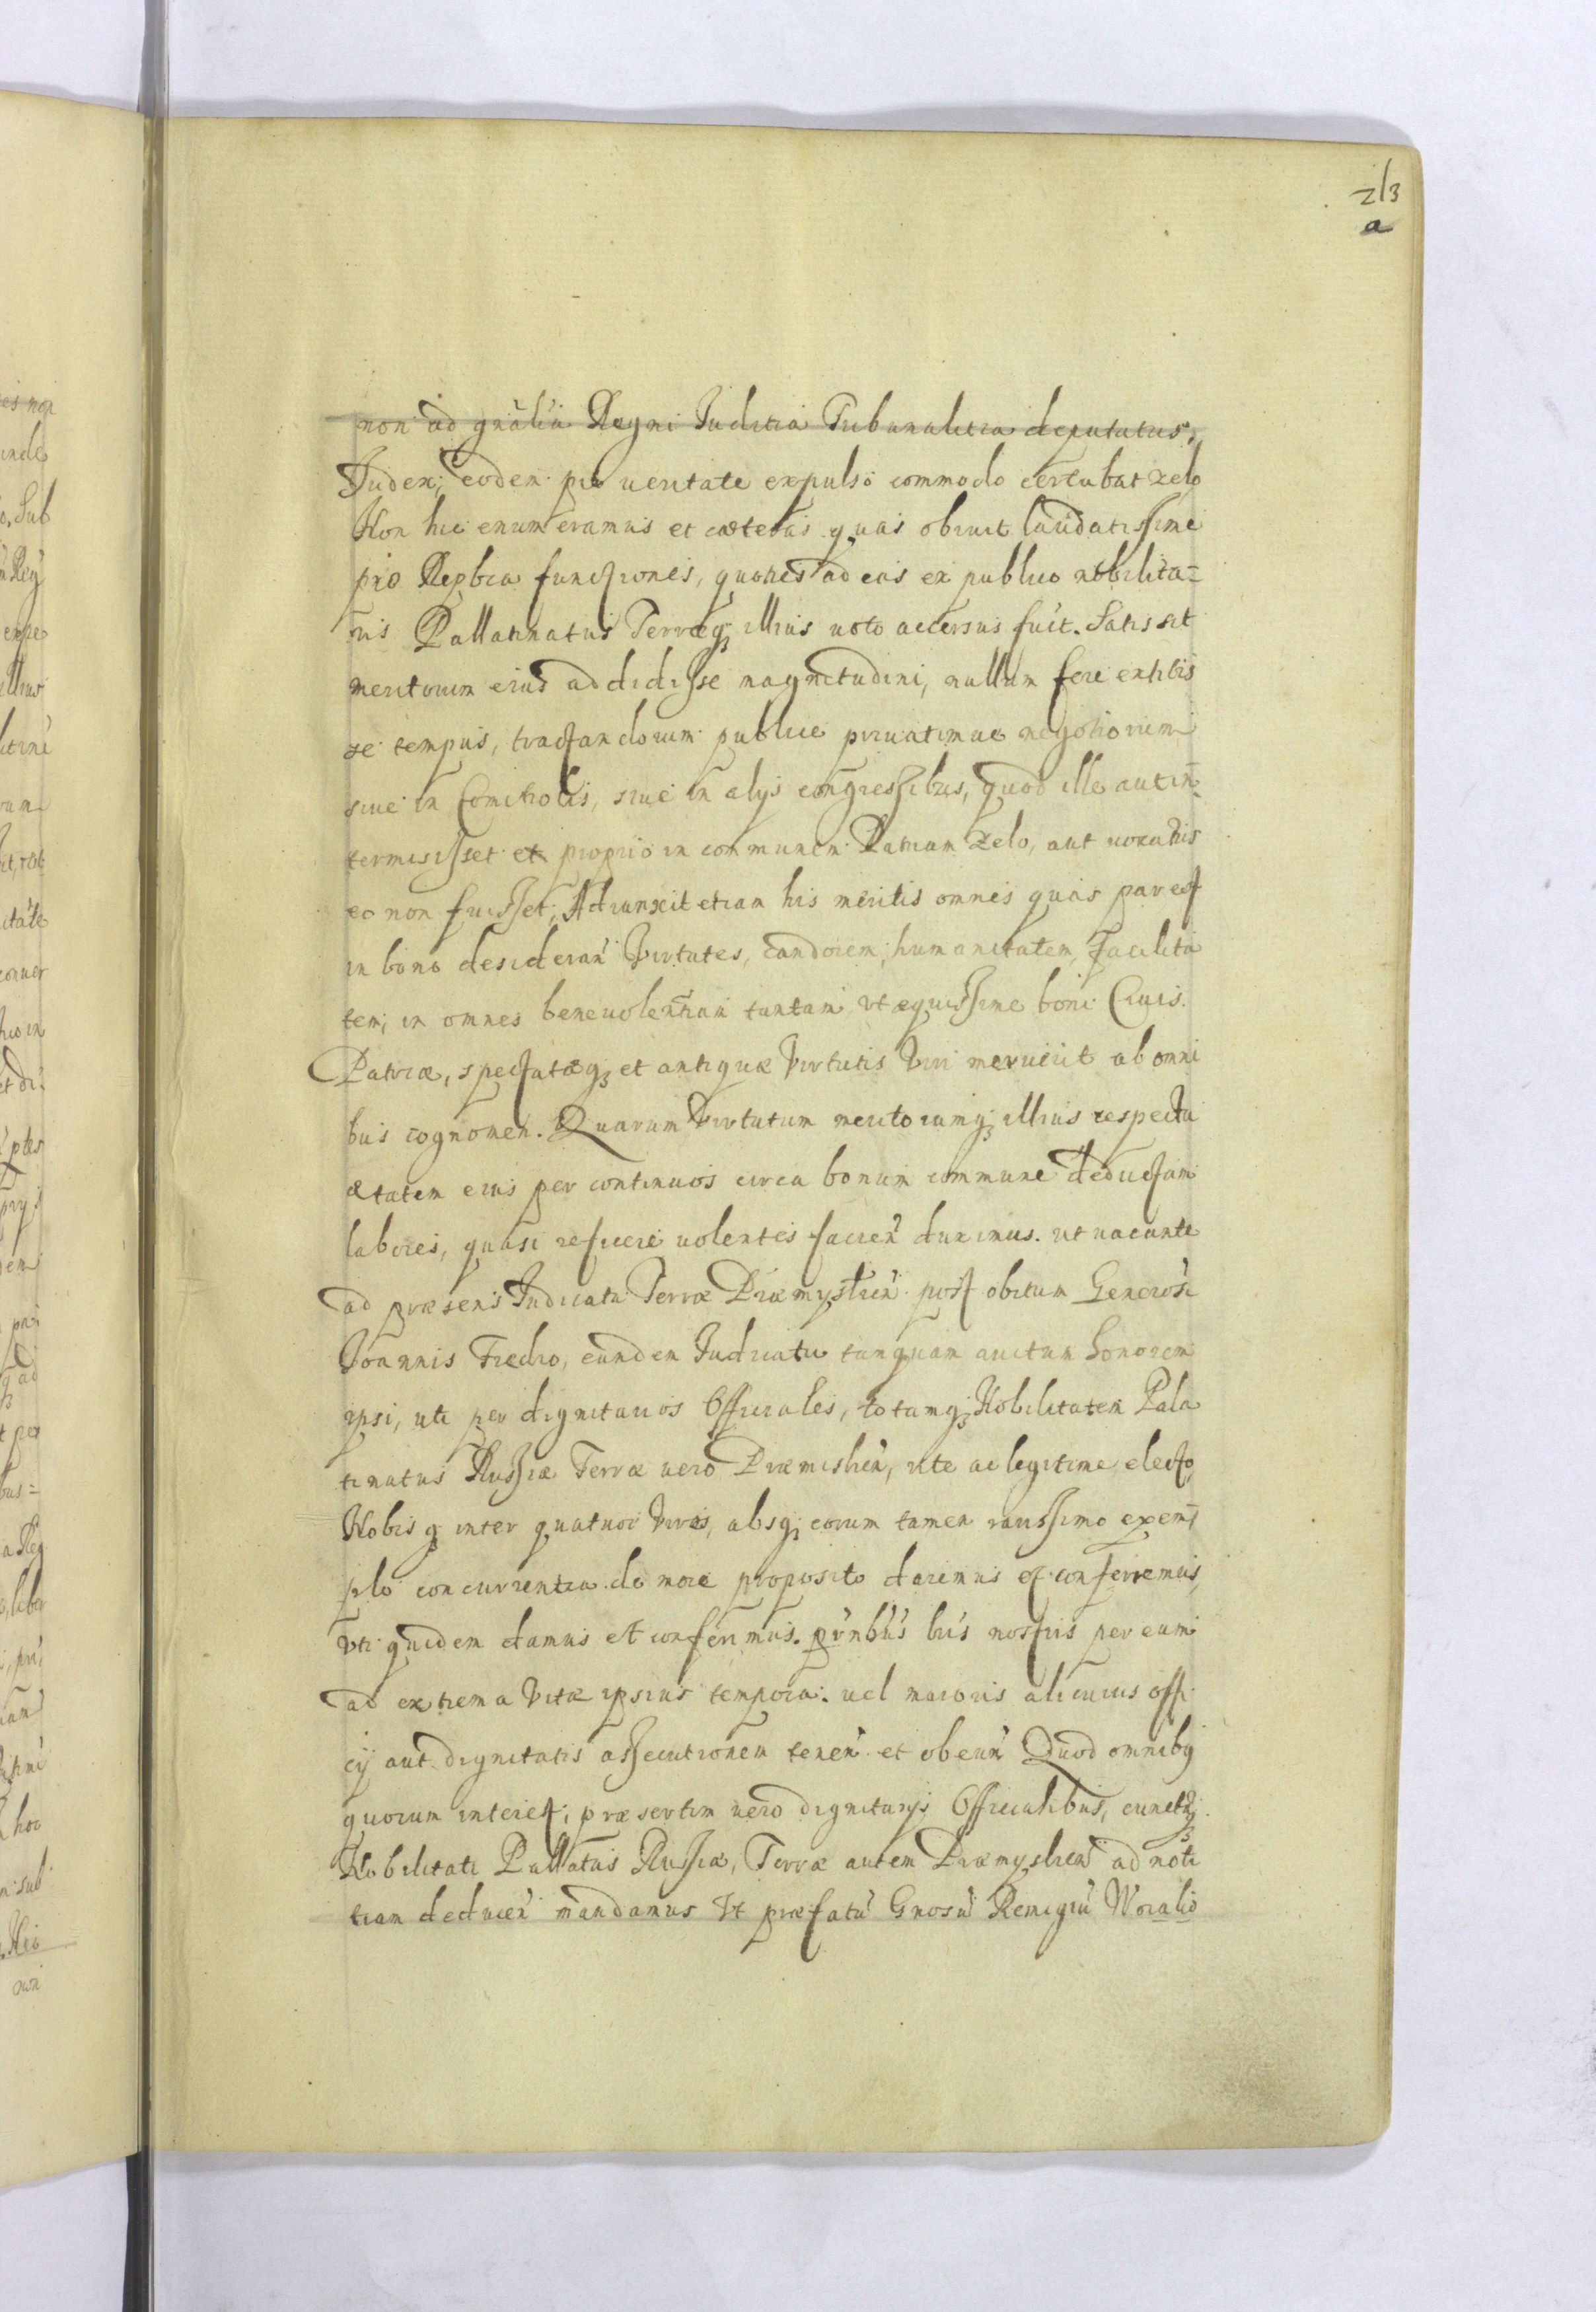 213
a
non ad gnãlia Regni Iudicia Tribunalitia deputatus,
Iudex, eodem pro ueritate expulso commodo certabat zelo
Non hic enumeramus et cæteras quas obiuit laudatissime
pro Repbca functiones, quoties ad eas ex publico nobilita=
tis Pallatinatus Terræq; illius uoto accersus fuit. Satis sit
meritorum eius addidisse magnitudini, nullum fere extitis
se tempus, tractandorum publice priuatimue negotiorum
siue in Comitiolis, siue in alijs congressibus, quod ille aut in=
termisisset ex proprio in communem Patriam zelo, aut uocatus
eo non fuisset; Adiunxit etiam his meritis omnes quas par est
in bono desiderari Virtutes, candorem, humanitatem, Facilita
tem, in omnes beneuolentiam tantam vt æquissime boni Ciuis
Patriæ, spectatæq; et antiquæ Virtutis Viri meruerit ab omni
bus cognomen. Quarum Virtutum meritorumq; illius respectu
ætatem eius per continuos circa bonum commune deductam
labores, quasi reficere uolentes facien̄ duximus. ut uacante
ad præsens Iudicatu Terræ Præmyslien̄ post obitum Generosi
Ioannis Fredro, eundem Iudicatu tanquam auitum honorem
ipsi, uti per dignitarios Officiales, totamq; Nobilitatem Pala
tinatus Russiæ Terræ uero Præmislien̄, rite ac legitime electo
Nobisq; inter quatuor Viros, absq; eorum tamen rarissimo exem=
plo concurrentia de more proposito daremus et conferremus,
vti quidem damus et conferimus. prn̄bus lris nostris per eum
ad extrema Vitæ ipsius tempora. uel maioris alicuius offi
cij aut dignitatis assecutionem tenen̄ et obeun̄ Quod omnibq
quorum interest, præsertim uero dignitarijs Officialibus, cunctæq;
Nobilitati Pallatūs Russiæ, Terræ autem Præmyslien̄ ad noti
tiam deducen̄ mandamus Vt præfatū Gnosū Remigiū